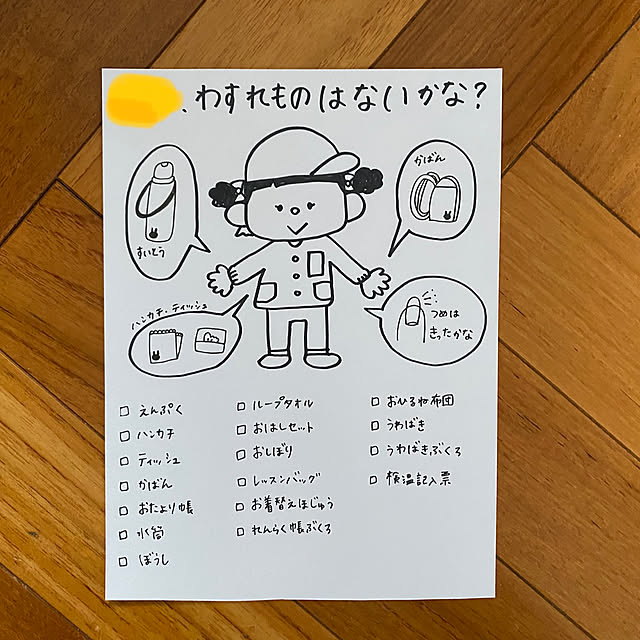 、わすれものはないかな?
かばん
すいとう
ハンカチ、ティッシュ
つめは
きったかな
□ えんぷく
□ ハンカチ
□ ティッシュ
□ かばん
□ おたより帳
□ 水筒
□ ぼうし
□ ループタオル
□ おはしセット
□ おしぼり
□ レッスンバッグ
□ お着替えほじゅう
□ れんらく帳ぶくろ
□ おひるね布団
□ うわばき
□ うわばきぶくろ
□ 検温記入票